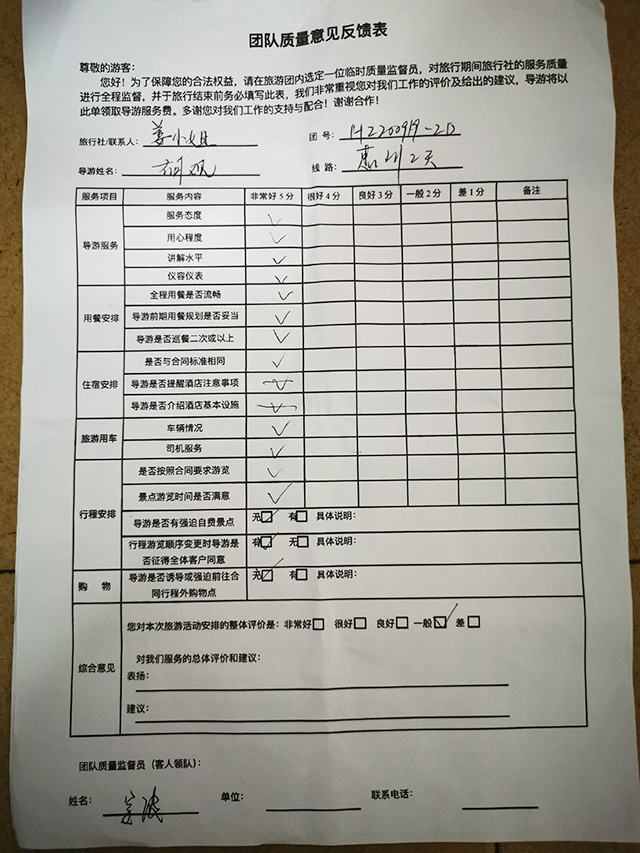 团队质量意见反馈表
尊敬的游客：
您好！为了保障您的合法权益，请在旅游团内选定一位临时质量监督员，对旅行期间旅行社的服务质量
进行全程监督，并于旅行结束前务必填写此表，我们非常重视您对我们工作的评价及给出的建议，导游将以
此单领取导游服务费。多谢您对我们工作的支持与配合！谢谢合作！
旅行社/联系人：姜小姐 团 号：HZ200919-2D
导游姓名： 线 路：惠州2天
服务项目 服务内容 非常好5分 很好4分 良好3分 一般2分 差1分 备注
导游服务
服务态度 ✓
用心程度 ✓
讲解水平 ✓
仪容仪表 ✓
用餐安排
全程用餐是否流畅 ✓
导游前期用餐规划是否妥当 ✓
导游是否巡餐二次或以上 ✓
住宿安排
是否与合同标准相同 ✓
导游是否提醒酒店注意事项
导游是否介绍酒店基本设施
旅游用车
车辆情况 ✓
司机服务 ✓
行程安排
是否按照合同要求游览 ✓
景点游览时间是否满意 ✓
导游是否有强迫自费景点 无☑ 有□ 具体说明：
行程游览顺序变更时导游是
否征得全体客户同意 有☑ 无□ 具体说明：
购 物
导游是否诱导或强迫前往合
同行程外购物点 无☑ 有□ 具体说明：
综合意见
您对本次旅游活动安排的整体评价是：非常好□ 很好□ 良好□ 一般☑ 差□
对我们服务的总体评价和建议：
表扬：
建议：
团队质量监督员（客人领队）：
姓名： 单位： 联系电话：